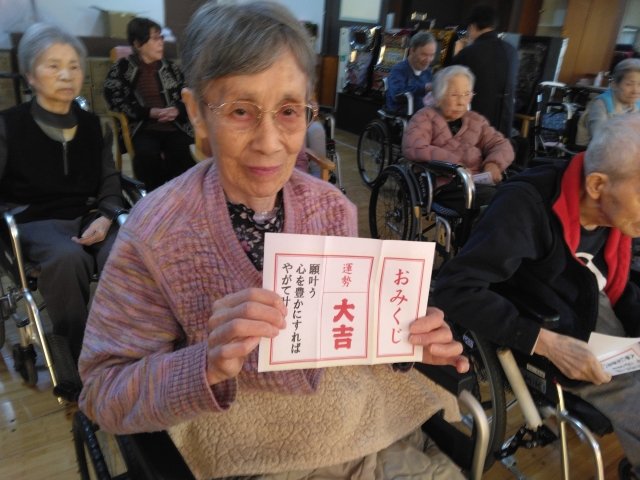 おみくじ
運勢
大吉
願叶う
心を豊かにすれば
やがて叶